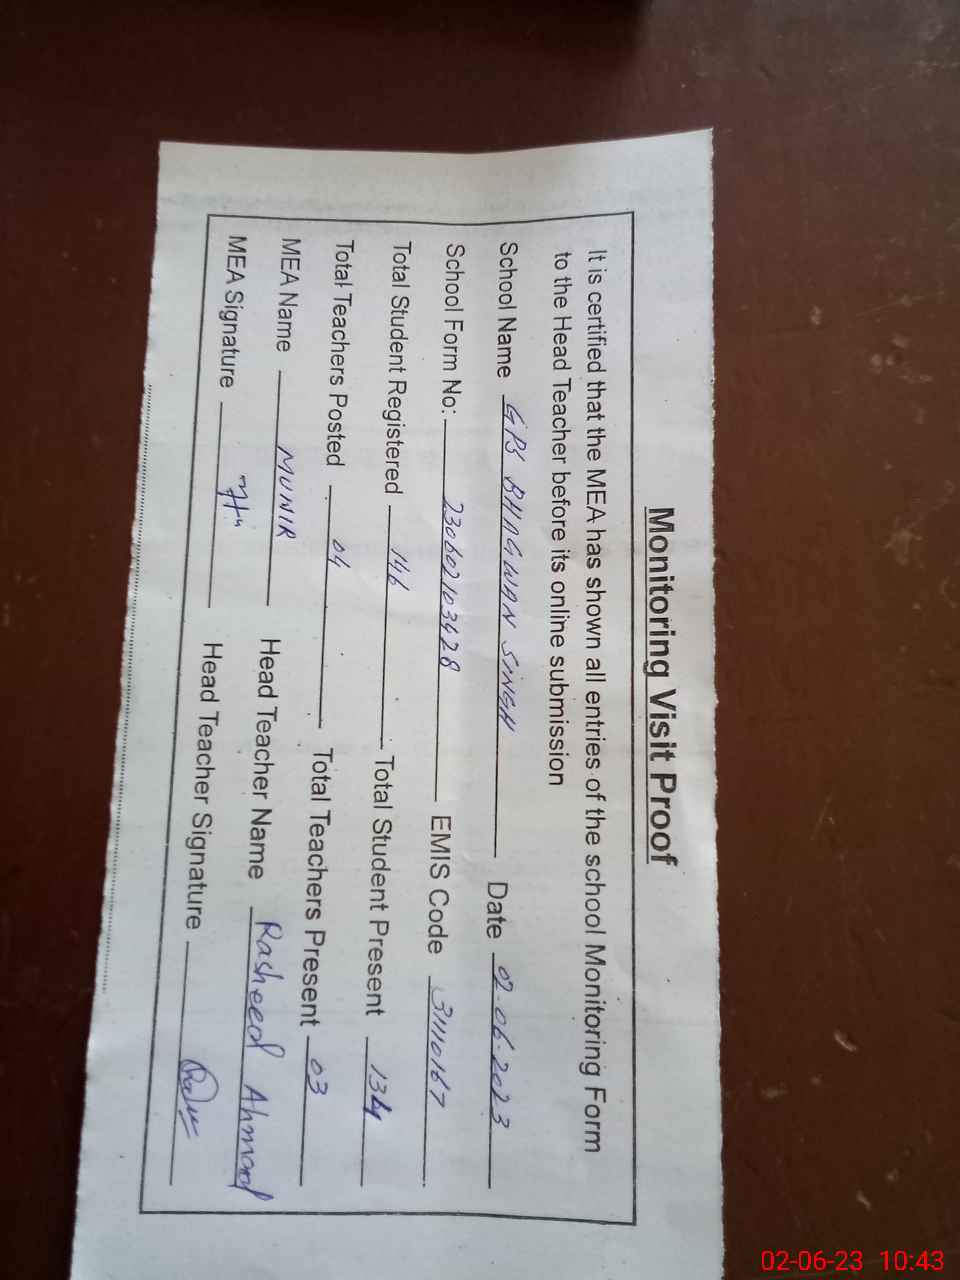 Monitoring Visit Proof
It is certified that the MEA has shown all entries of the school Monitoring Form
to the Head Teacher before its online submission
School Name GPS BHAGWAN SINGH Date 02.06.2023
School Form No: 230602103428 EMIS Code 31110167
Total Student Registered 146 Total Student Present 134
Total Teachers Posted 04 Total Teachers Present 03
MEA Name MUNIR Head Teacher Name Rasheed Ahmad
MEA Signature Head Teacher Signature
02-06-23 10:43